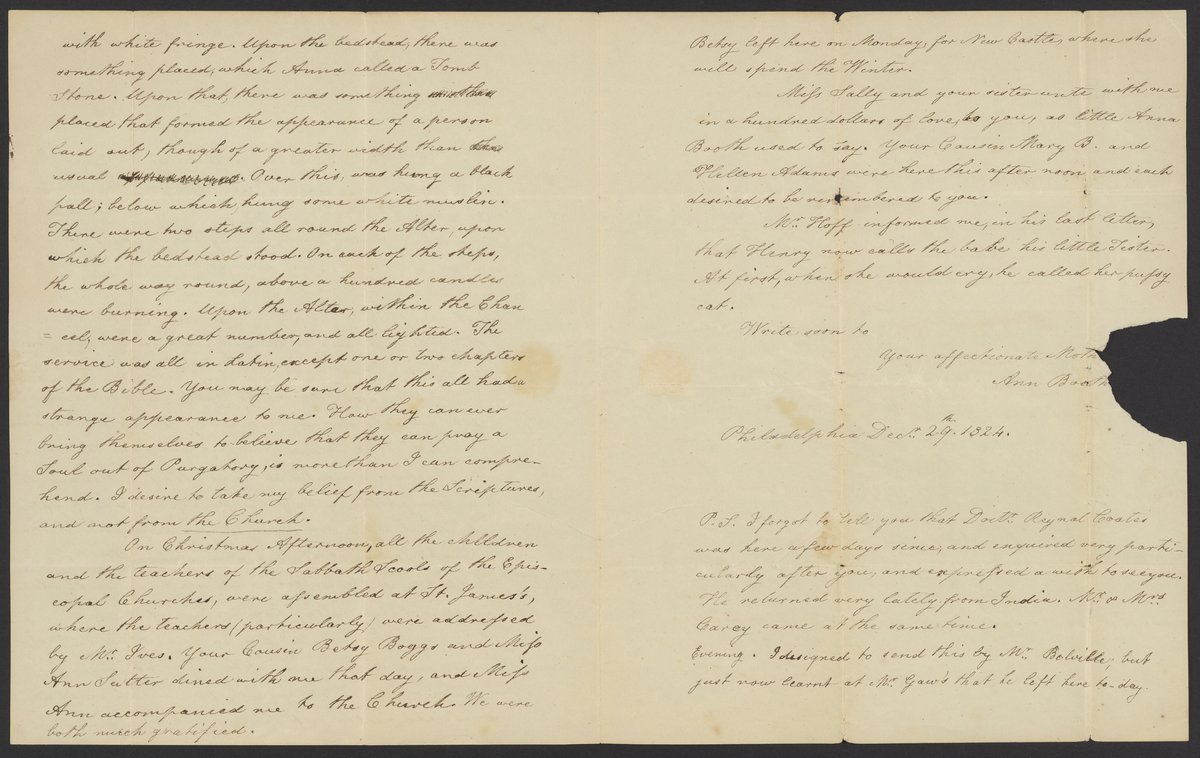 with white fringe. Upon the bedstead, there was
something placed, which Anna called a Tomb
Stone. Upon that, there was something
placed that formed the appearance of a person
laid out, though of a greater width than
usual. Over this, was hung a black
pall; below which hung some white muslin.
There were two steps all round the Alter, upon
which the bedstead stood. On each of the steps,
the whole way round, above a hundred candles
were burning. Upon the Altar, within the Chan
=cel, were a great number, and all lighted. The
service was all in Latin, except one or two chapters
of the Bible. You may be sure that this all had a
strange appearance to me. How they can ever
bring themselves to believe that they can pray a
Soul out of Purgatory, is more than I can compre-
hend. I desire to take my belief from the Scriptures,
and not from the Church.
On Christmas Afternoon, all the children
and the teachers of the Sabbath Scools of the Epis-
copal Churches, were assembled at St. James's,
where the teachers (particularly) were addressed
by Mr. Ives. Your Cousin Betsy Boggs and Miss
Ann Sutter dined with me that day, and Miss
Ann accompanied me to the Church. We were
both much gratified.
Betsy left here on Monday, for New Castle, where she
will spend the Winter.
Miss Sally and your sister unite with me
in a hundred dollars of love, to you, as little Anna
Booth used to say. Your Cousin Mary B. and
Hellen Adams were here this after noon and each
desired to be remembered to you.
Mr. Hoff informed me, in his last letter,
that Henry now calls the babe his little Sister.
At first, when she would cry, he called her pussy
cat.
Write soon to
Your affectionate Moth
Ann Booth
Philadelphia Decr. 29th. 1824.
P.S. I forgot to tell you that Doctr. Reynal Coates
was here a few days since, and enquired very parti-
cularly after you, and expressed a wish to see you.
He returned very lately from India. Mr. & Mrs.
Carey came at the same time.
Evening. I designed to send this by Mr. Bolville, but
just now learnt at Mr. Gaw's that he left here to-day.